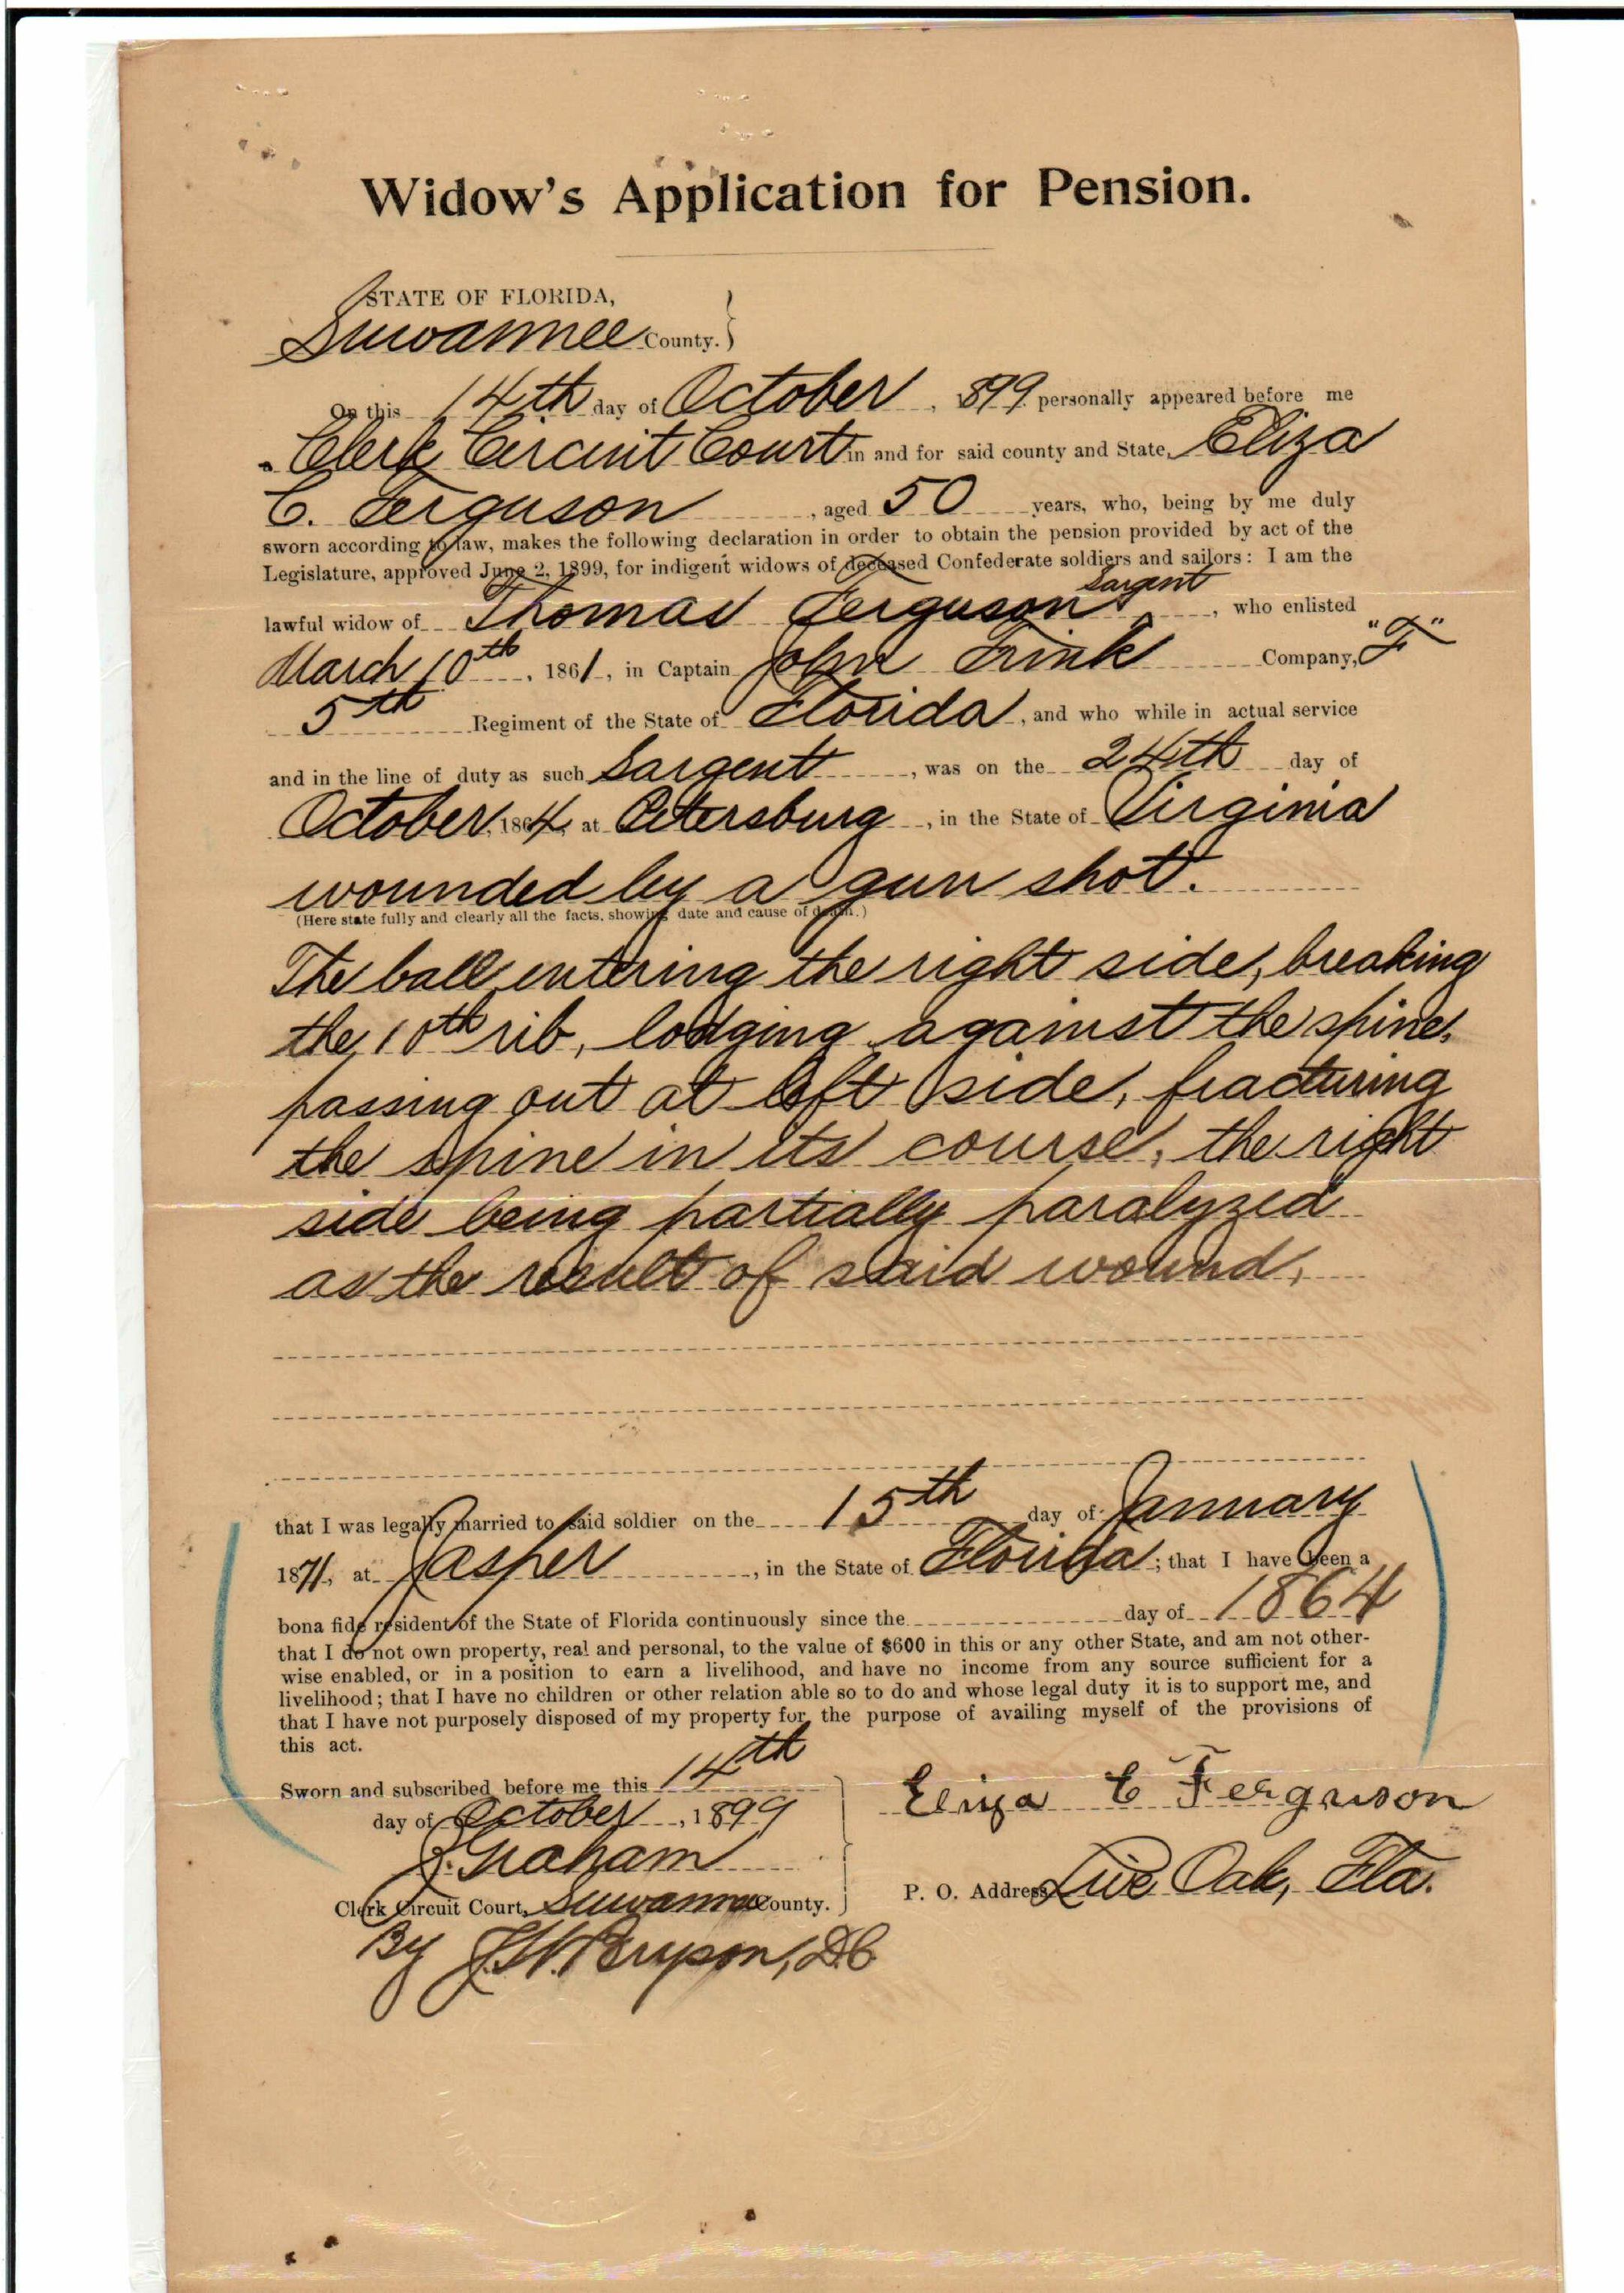 Widow's Application for Pension.
STATE OF FLORIDA,
Suwannee County.
On this 14th day of October, 1899 personally appeared before me
a Clerk Circuit Court in and for said county and State, Eliza
C. Ferguson, aged 50 years, who, being by me duly
sworn according to law, makes the following declaration in order to obtain the pension provided by act of the
Legislature, approved June 2, 1899, for indigent widows of deceased Confederate soldiers and sailors: I am the
lawful widow of Thomas Ferguson Sargent, who enlisted
March 10th, 1861, in Captain John Frink Company, "F"
5th Regiment of the State of Florida, and who while in actual service
and in the line of duty as such Sargent, was on the 24th day of
October, 1864, at Petersburg, in the State of Virginia
wounded by a gun shot.
(Here state fully and clearly all the facts, showing date and cause of death.)
The ball entering the right side, breaking
the 10th rib, lodging against the spine,
passing out at left side, fracturing
the spine in its course, the right
side being partially paralyzed
as the result of said wound,
that I was legally married to said soldier on the 15th day of January
1871, at Jasper, in the State of Florida; that I have been a
bona fide resident of the State of Florida continuously since the day of 1864
that I do not own property, real and personal, to the value of $600 in this or any other State, and am not other-
wise enabled, or in a position to earn a livelihood, and have no income from any source sufficient for a
livelihood; that I have no children or other relation able so to do and whose legal duty it is to support me, and
that I have not purposely disposed of my property for the purpose of availing myself of the provisions of
this act.
Sworn and subscribed before me this 14th
day of October, 1899
Eliza C Ferguson
J. Graham
Clerk Circuit Court, Suwannee County.
P. O. Address Live Oak, Fla.
By J.W. Bryson, D.C.